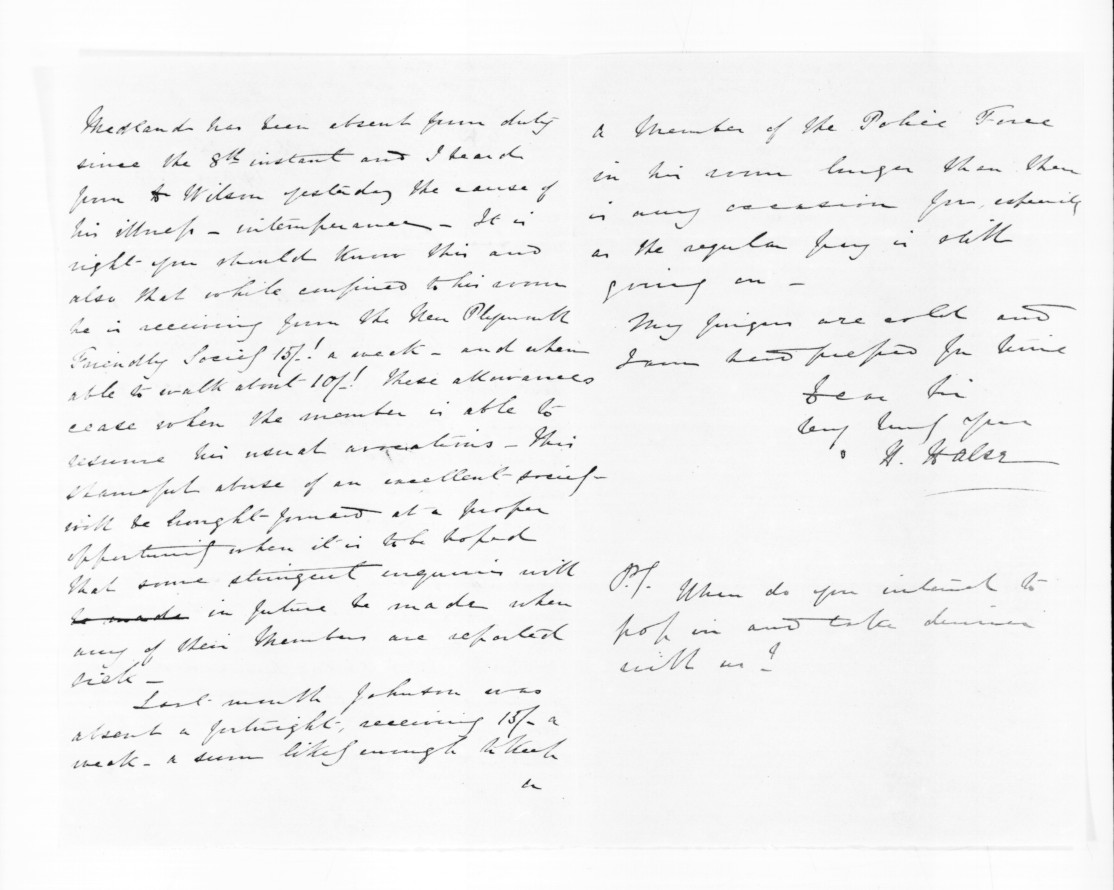 Medland has been absent from duty
since the 8th instant and I heard
from Dr Wilson yesterday the cause of
his illness - intemperance - It is
right you should know this and
also that while confined to his room
he is receiving from the New Plymouth
Friendly Society 15/! a week - and when
able to walk about 10/! These allowances
cease when the member is able to
resume his usual avocations - This
shameful abuse of an excellent society
will be brought forward at a proper
opportunity when it is to be hoped
that some stringent enquiries will
to made in future be made when
any of their Members are reported
sick -
Last month Johnson was
absent a fortnight, receiving 15/- a
week - a sum likely enough to keep
a
a Member of the Police Force
in his room longer than there
is any occasion for, especially
as the regular pay is still
going on -
My fingers are cold and
I am hard pressed for time
Dear Sir
Very truly yours
H. Halse
P.S. When do you intend to
pop in and take dinner
with us?